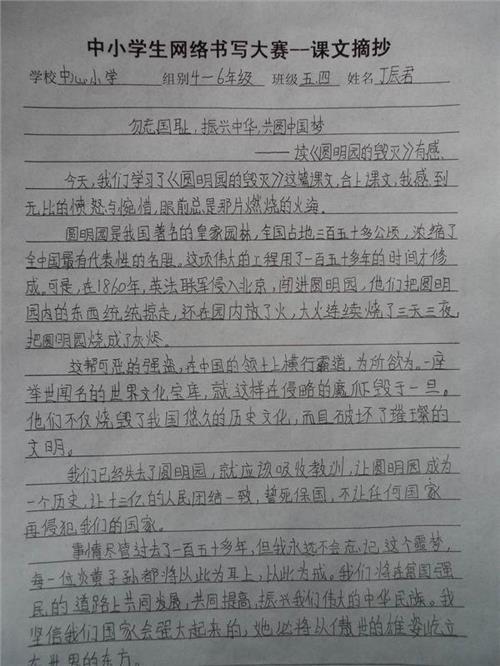 中小学生网络书写大赛--课文摘抄
学校中心小学 组别4—6年级 班级五.四 姓名丁辰君
勿忘国耻,振兴中华,共圆中国梦
——读《圆明园的毁灭》有感
今天,我们学习了《圆明园的毁灭》这篇课文,合上课文,我感到
无比的愤怒与惋惜,眼前总是那片燃烧的火海。
圆明园是我国著名的皇家园林,全园占地三百五十多公顷,浓缩了
全中国最有代表性的名胜。这项伟大的工程用了一百五十多年的时间才修
成。可是,在1860年,英法联军侵入北京,闯进圆明园,他们把圆明
园内的东西统统掠走,还在园内放了火,大火连续烧了三天三夜,
把圆明园烧成了灰烬。
这帮可恶的强盗,在中国的领土上横行霸道,为所欲为。一座
举世闻名的世界文化宝库,就这样在侵略的魔爪下毁于一旦。
他们不仅烧毁了我国悠久的历史文化,而且破坏了璀璨的
文明。
我们已经失去了圆明园,就应该吸收教训,让圆明园成为
一个历史,让十三亿的人民团结一致,誓死保国,不让任何国家
再侵犯我们的国家。
事情尽管过去了一百五十多年,但我永远不会忘记这个噩梦,
每一位炎黄子孙都将以此为耻,以此为戒。我们将在富国强
民的道路上共同发展,共同提高,振兴我们伟大的中华民族。我
坚信我们国家会强大起来的,她必将以傲世的雄姿屹立
在世界的东方。